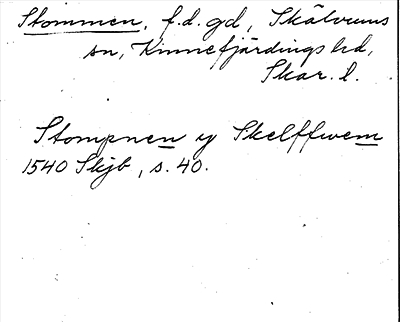 Stommen, f.d. gd, Skälvums
sn, Kinnefjärdings hd,
Skar. l.
Stompnen y Skelffwem
1540 Skjb, s. 40.